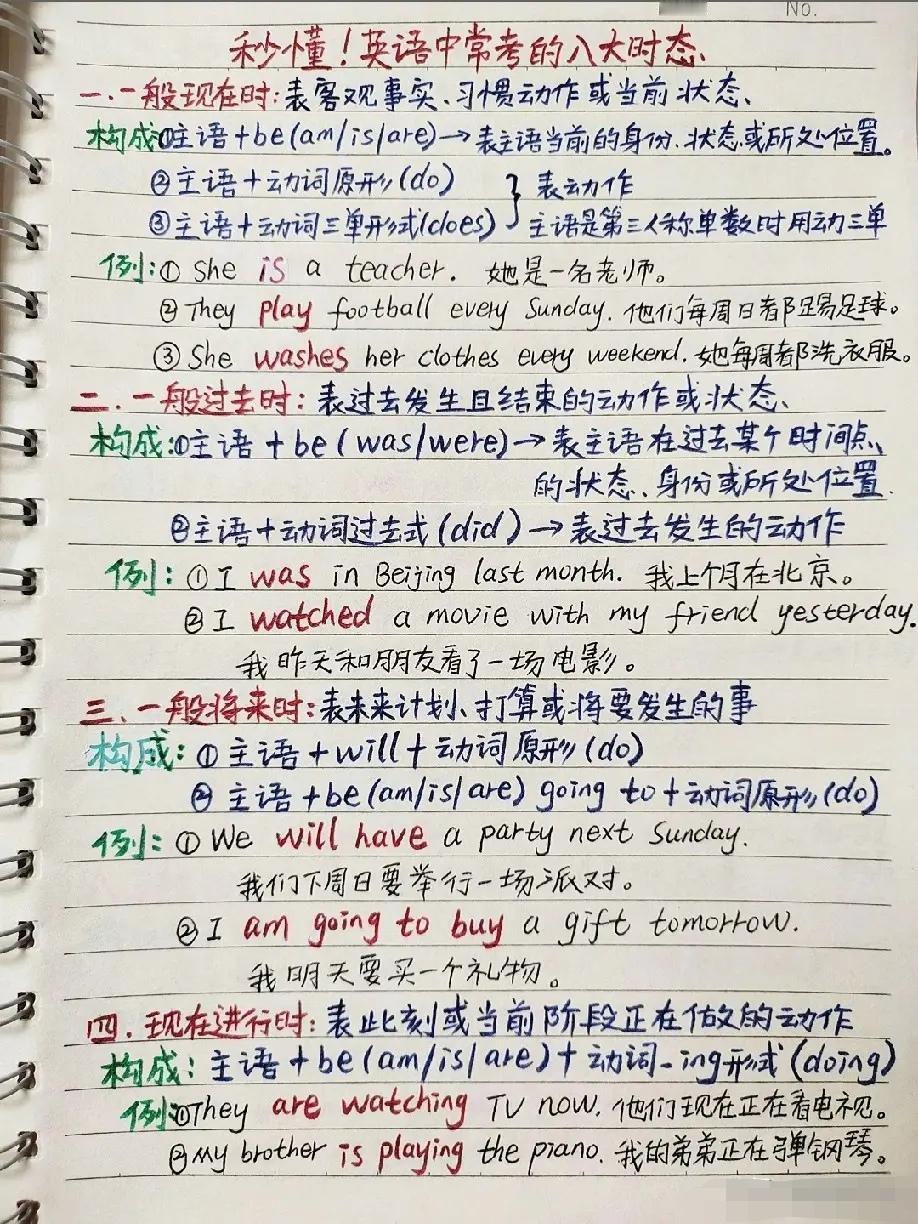 No.
秒懂！英语中常考的八大时态、
一.一般现在时：表客观事实、习惯动作或当前状态、
构成：①主语+be(am/is/are)→表主语当前的身份、状态或所处位置。
②主语+动词原形(do) } 表动作
③主语+动词三单形式(does) 主语是第三人称单数时用动三单
例：① She is a teacher. 她是一名老师。
② They play football every Sunday. 他们每周日都踢足球。
③ She washes her clothes every weekend. 她每周都洗衣服。
二.一般过去时：表过去发生且结束的动作或状态、
构成：①主语+be(was/were)→表主语在过去某个时间点、
的状态、身份或所处位置.
②主语+动词过去式(did)→表过去发生的动作
例：① I was in Beijing last month. 我上个月在北京。
② I watched a movie with my friend yesterday.
我昨天和朋友看了一场电影。
三、一般将来时：表未来计划、打算或将要发生的事
构成：① 主语+will+动词原形(do)
② 主语+be(am/is/are) going to+动词原形(do)
例：① We will have a party next Sunday.
我们下周日要举行一场派对。
② I am going to buy a gift tomorrow.
我明天要买一个礼物。
四.现在进行时：表此刻或当前阶段正在做的动作
构成：主语+be(am/is/are)+动词-ing形式(doing)
例：①They are watching TV now. 他们现在正在看电视。
②My brother is playing the piano. 我的弟弟正在弹钢琴。